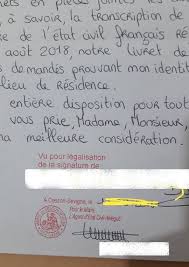 en pièces jointes les
à savoir, la transcription de
de l'état civil français ré
août 2018, notre livret de
s demandés prouvant mon identit
lieu de résidence.
entière disposition pour tout
vous prie, Madame, Monsieur,
ma meilleure considération.
Vu pour légalisation
de la signature de
A Cesson-Sévigné, le
Pour le Maire
L'Agent d'Etat Civil délégué